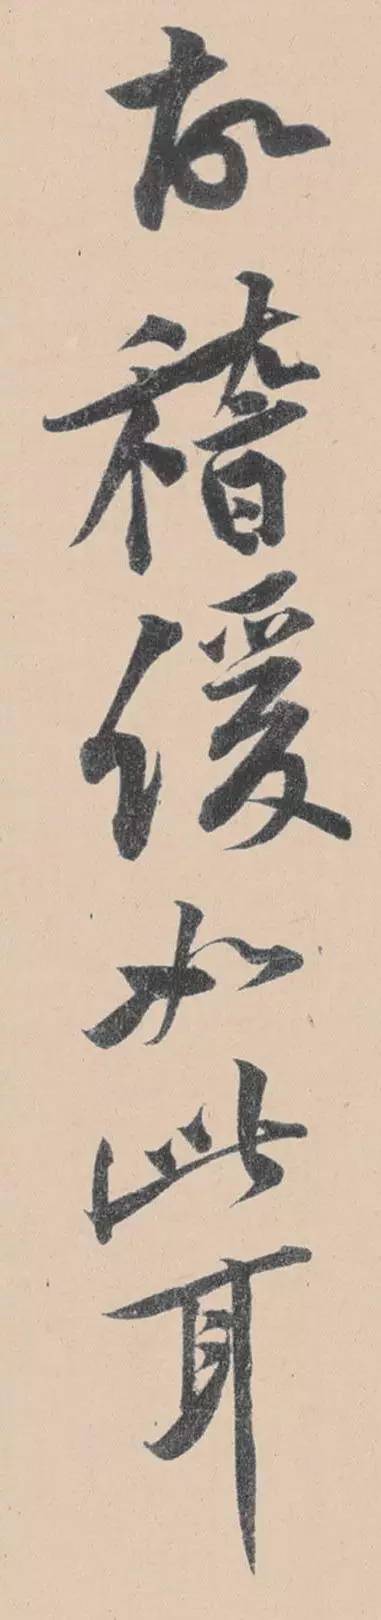 故稽缓如此耳